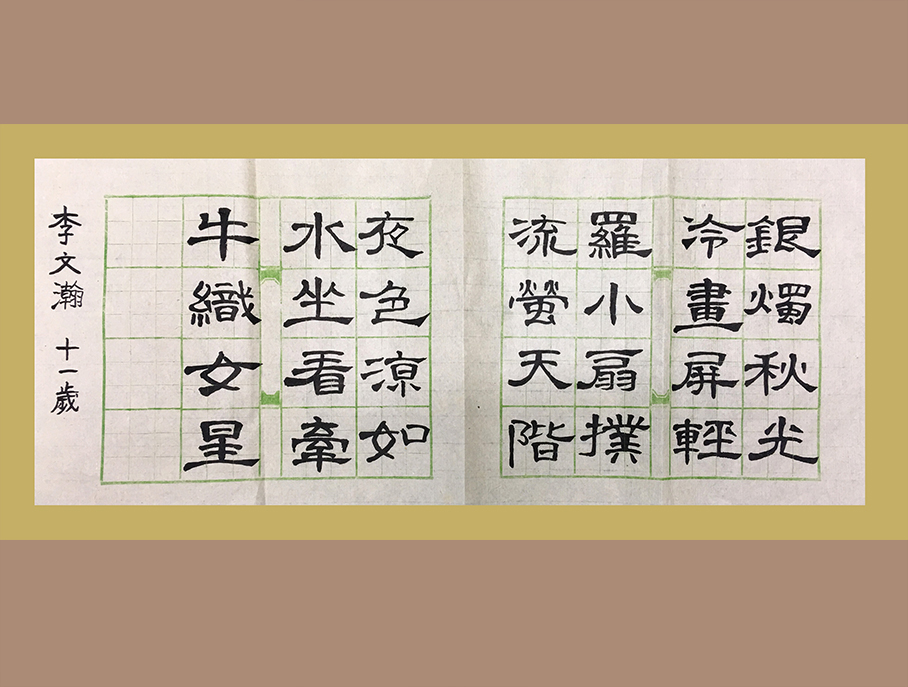 銀燭秋光
冷畫屏輕
羅小扇撲
流螢天階
夜色涼如
水坐看牽
牛織女星
李文瀚 十一歲